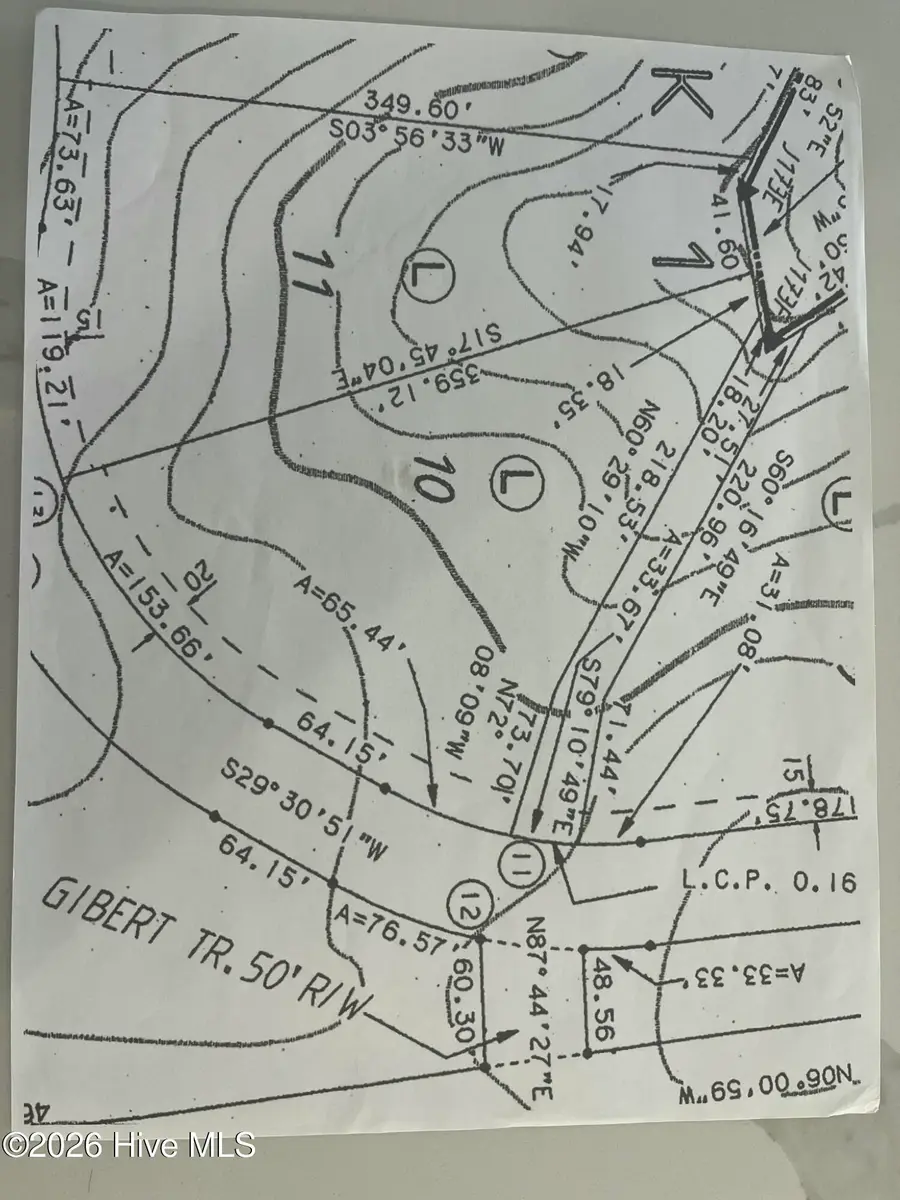 K
349.60'
S03°56'33"W
83'
7'
52"E
J173E
"W
A=73.63'
17.94'
41.60
1
42.
J173F
11
L
A=119.21'
15
S17°45'04"E
359.12'
18.35'
10
L
L
18.20'
27.51
N60°29'10"W
218.53'
220.96'
S60°16'49"E
A=33.67'
A=31.08'
A=153.66'
20
A=65.44'
N72°08'09"W
73.70'
S79°10'49"E
71.44'
64.15'
15
178.75'
S29°30'51"W
64.15'
11
12
L.C.P. 0.16
GIBERT TR. 50' R/W
A=76.57'
60.30'
N87°44'27"E
48.56
A=33.33'
N06°00'59"W
©2026 Hive MLS